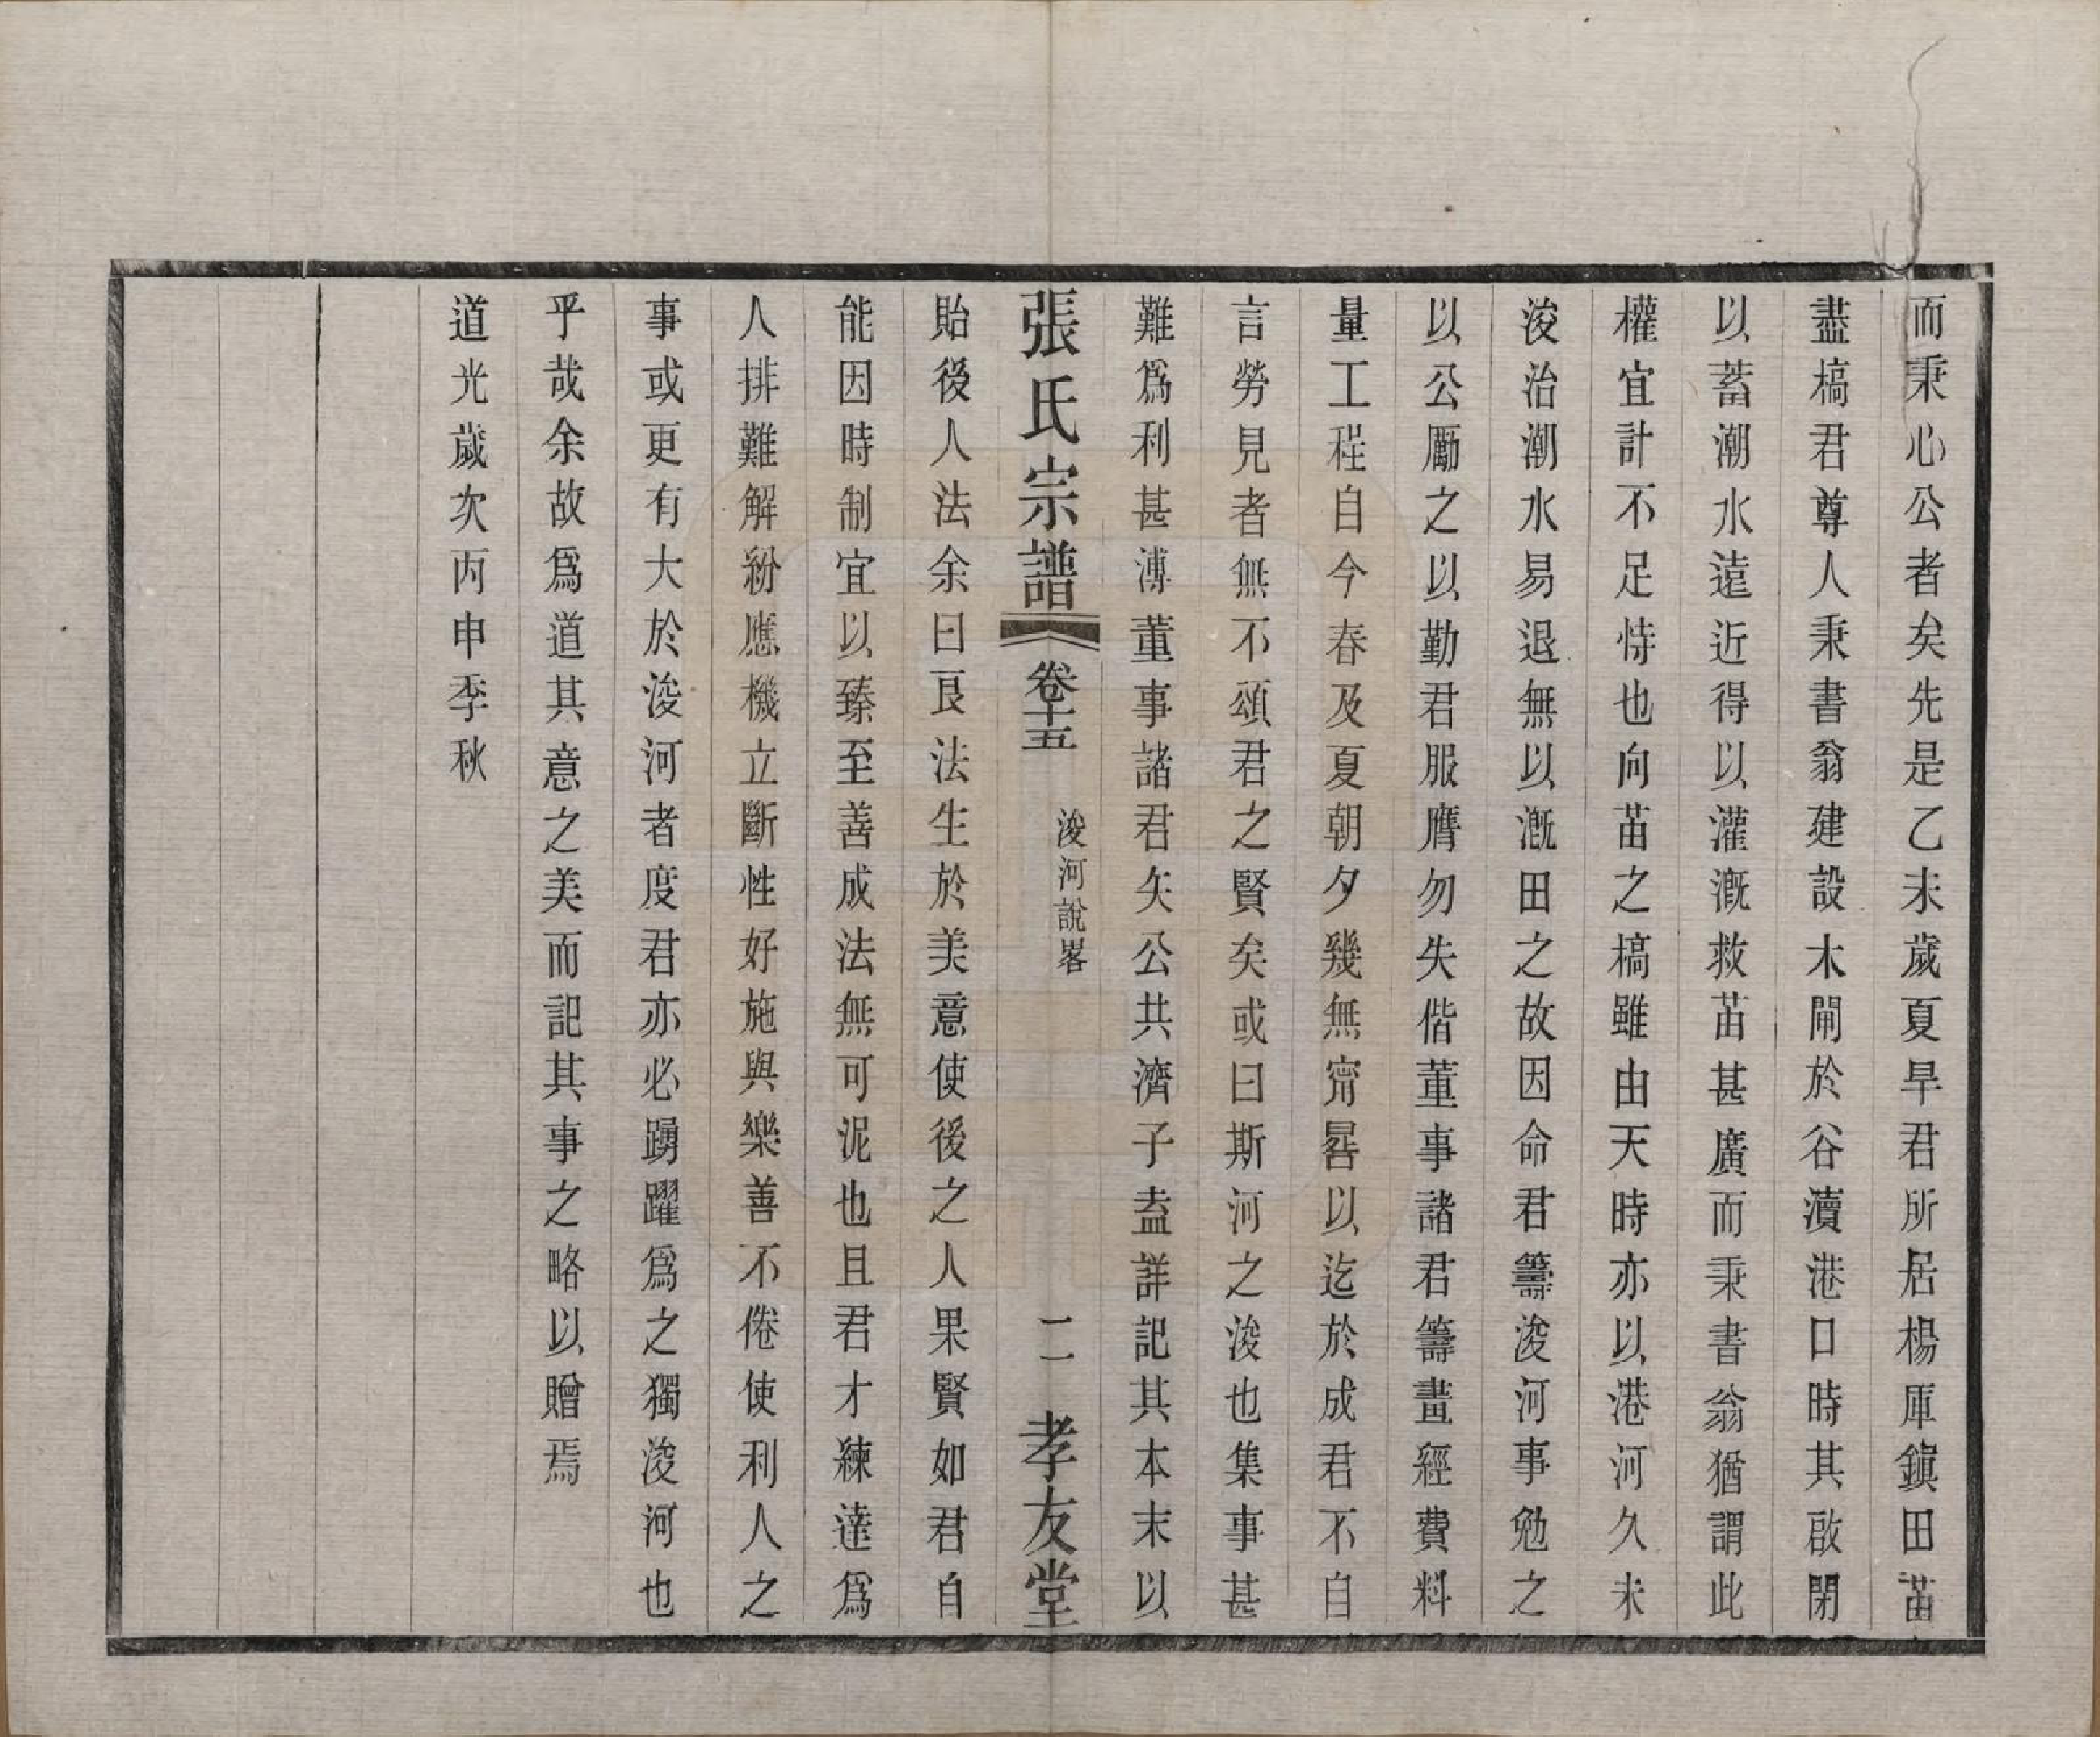 而秉心公者矣先是乙未歲夏旱君所居楊厙鎭田苗
盡槁君尊人秉書翁建設木閘於谷瀆港口時其啟閉
以蓄潮水遠近得以灌漑救苗甚廣而秉書翁猶謂此
權宜計不足恃也向苗之槁雖由天時亦以港河久未
浚治潮水易退無以漑田之故因命君籌浚河事勉之
以公勵之以勤君服膺勿失偕董事諸君籌畫經費料
量工程自今春及夏朝夕幾無甯晷以迄於成君不自
言勞見者無不頌君之賢矣或曰斯河之浚也集事甚
難爲利甚溥董事諸君矢公共濟子盍詳記其本末以
張氏宗譜 卷十五 浚河說畧 二 孝友堂
貽後人法余曰艮法生於美意使後之人果賢如君自
能因時制宜以臻至善成法無可泥也且君才練達爲
人排難解紛應機立斷性好施與樂善不倦使利人之
事或更有大於浚河者度君亦必踴躍爲之獨浚河也
乎哉余故爲道其意之美而記其事之略以贈焉
道光歲次丙申季秋